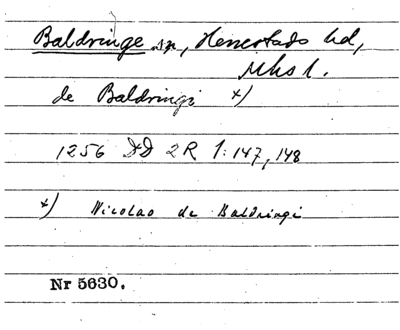 Baldringe sn, Herrestads hd,
Mhs l.
de Baldringi x)
1256 DD 2R 1:147, 148
x) Nicolao de Baldringi
Nr 5630.